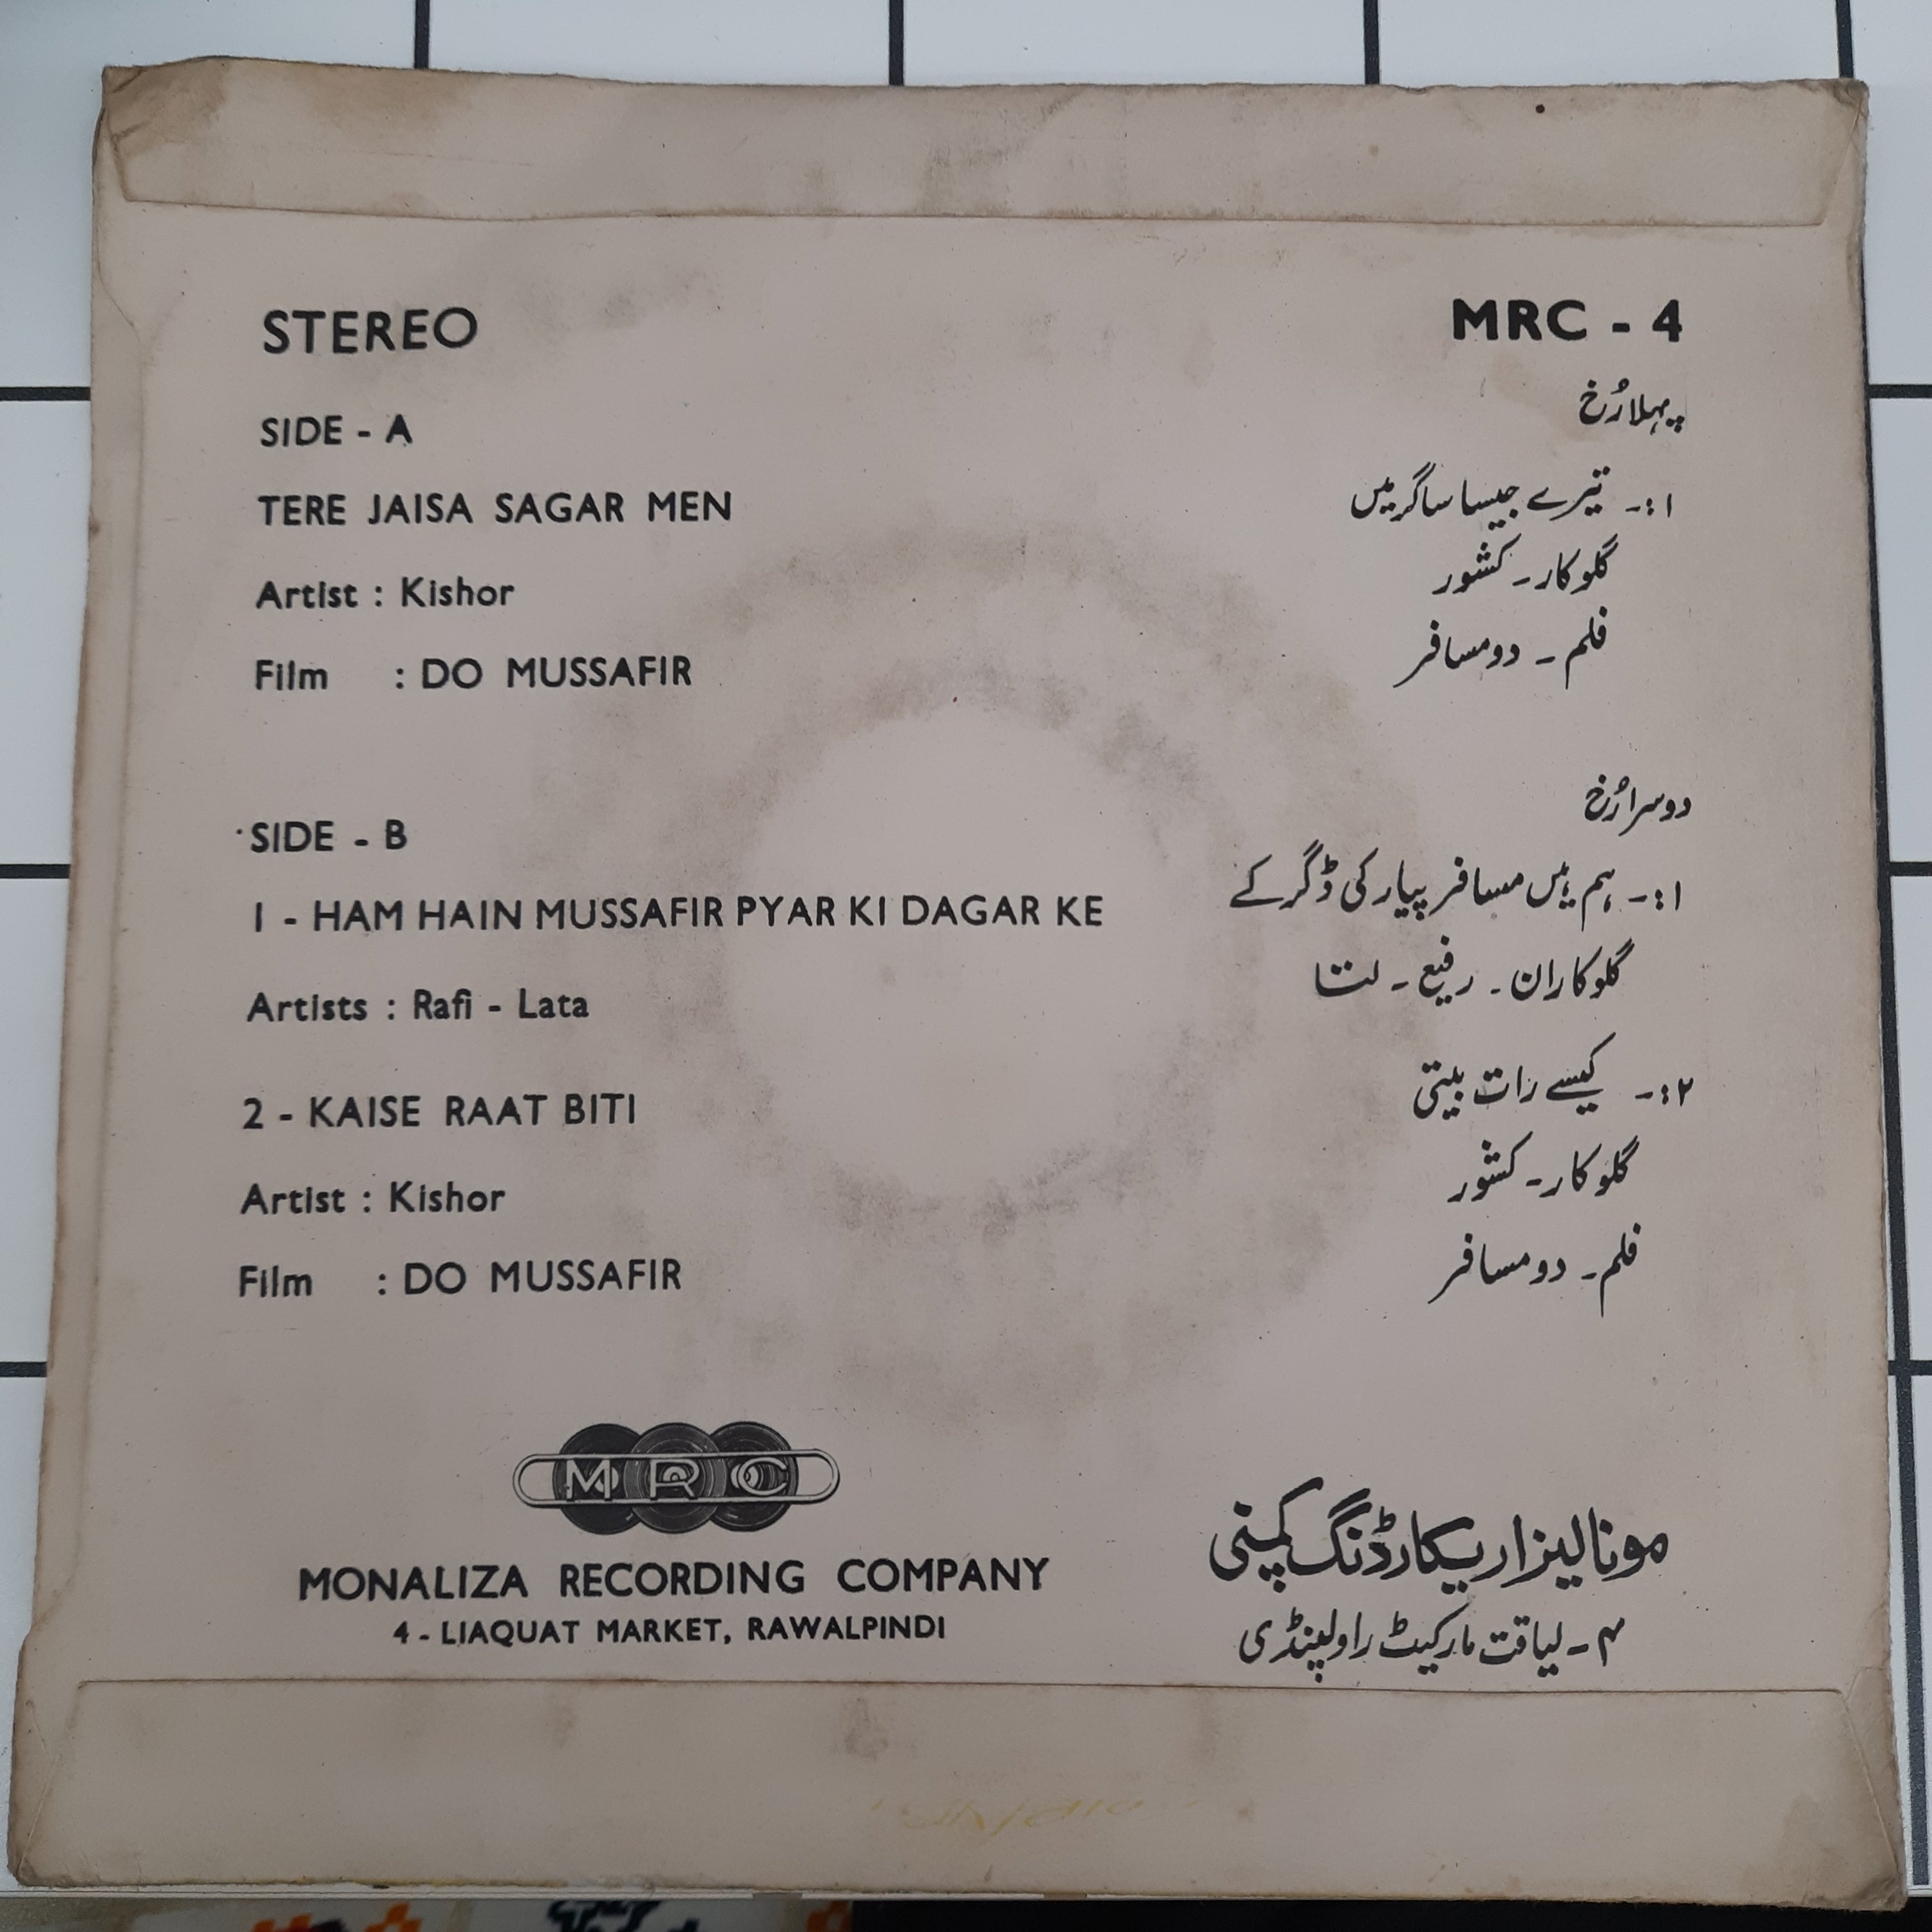 STEREO
MRC - 4
SIDE - A
پہلا رُخ
TERE JAISA SAGAR MEN
۱:۔ تیرے جیسا ساگر میں
Artist : Kishor
گلوکار۔ کشور
Film : DO MUSSAFIR
فلم ۔ دو مسافر
SIDE - B
دوسرا رُخ
1 - HAM HAIN MUSSAFIR PYAR KI DAGAR KE
۱:۔ ہم ہیں مسافر پیار کی ڈگر کے
Artists : Rafi - Lata
گلوکاران ۔ رفیع ۔ لتا
2 - KAISE RAAT BITI
۲:۔ کیسے رات بیتی
Artist : Kishor
گلوکار۔ کشور
Film : DO MUSSAFIR
فلم۔ دو مسافر
MRC
MONALIZA RECORDING COMPANY
مونالیزا ریکارڈنگ کمپنی
4 - LIAQUAT MARKET, RAWALPINDI
۴ ۔ لیاقت مارکیٹ راولپنڈی